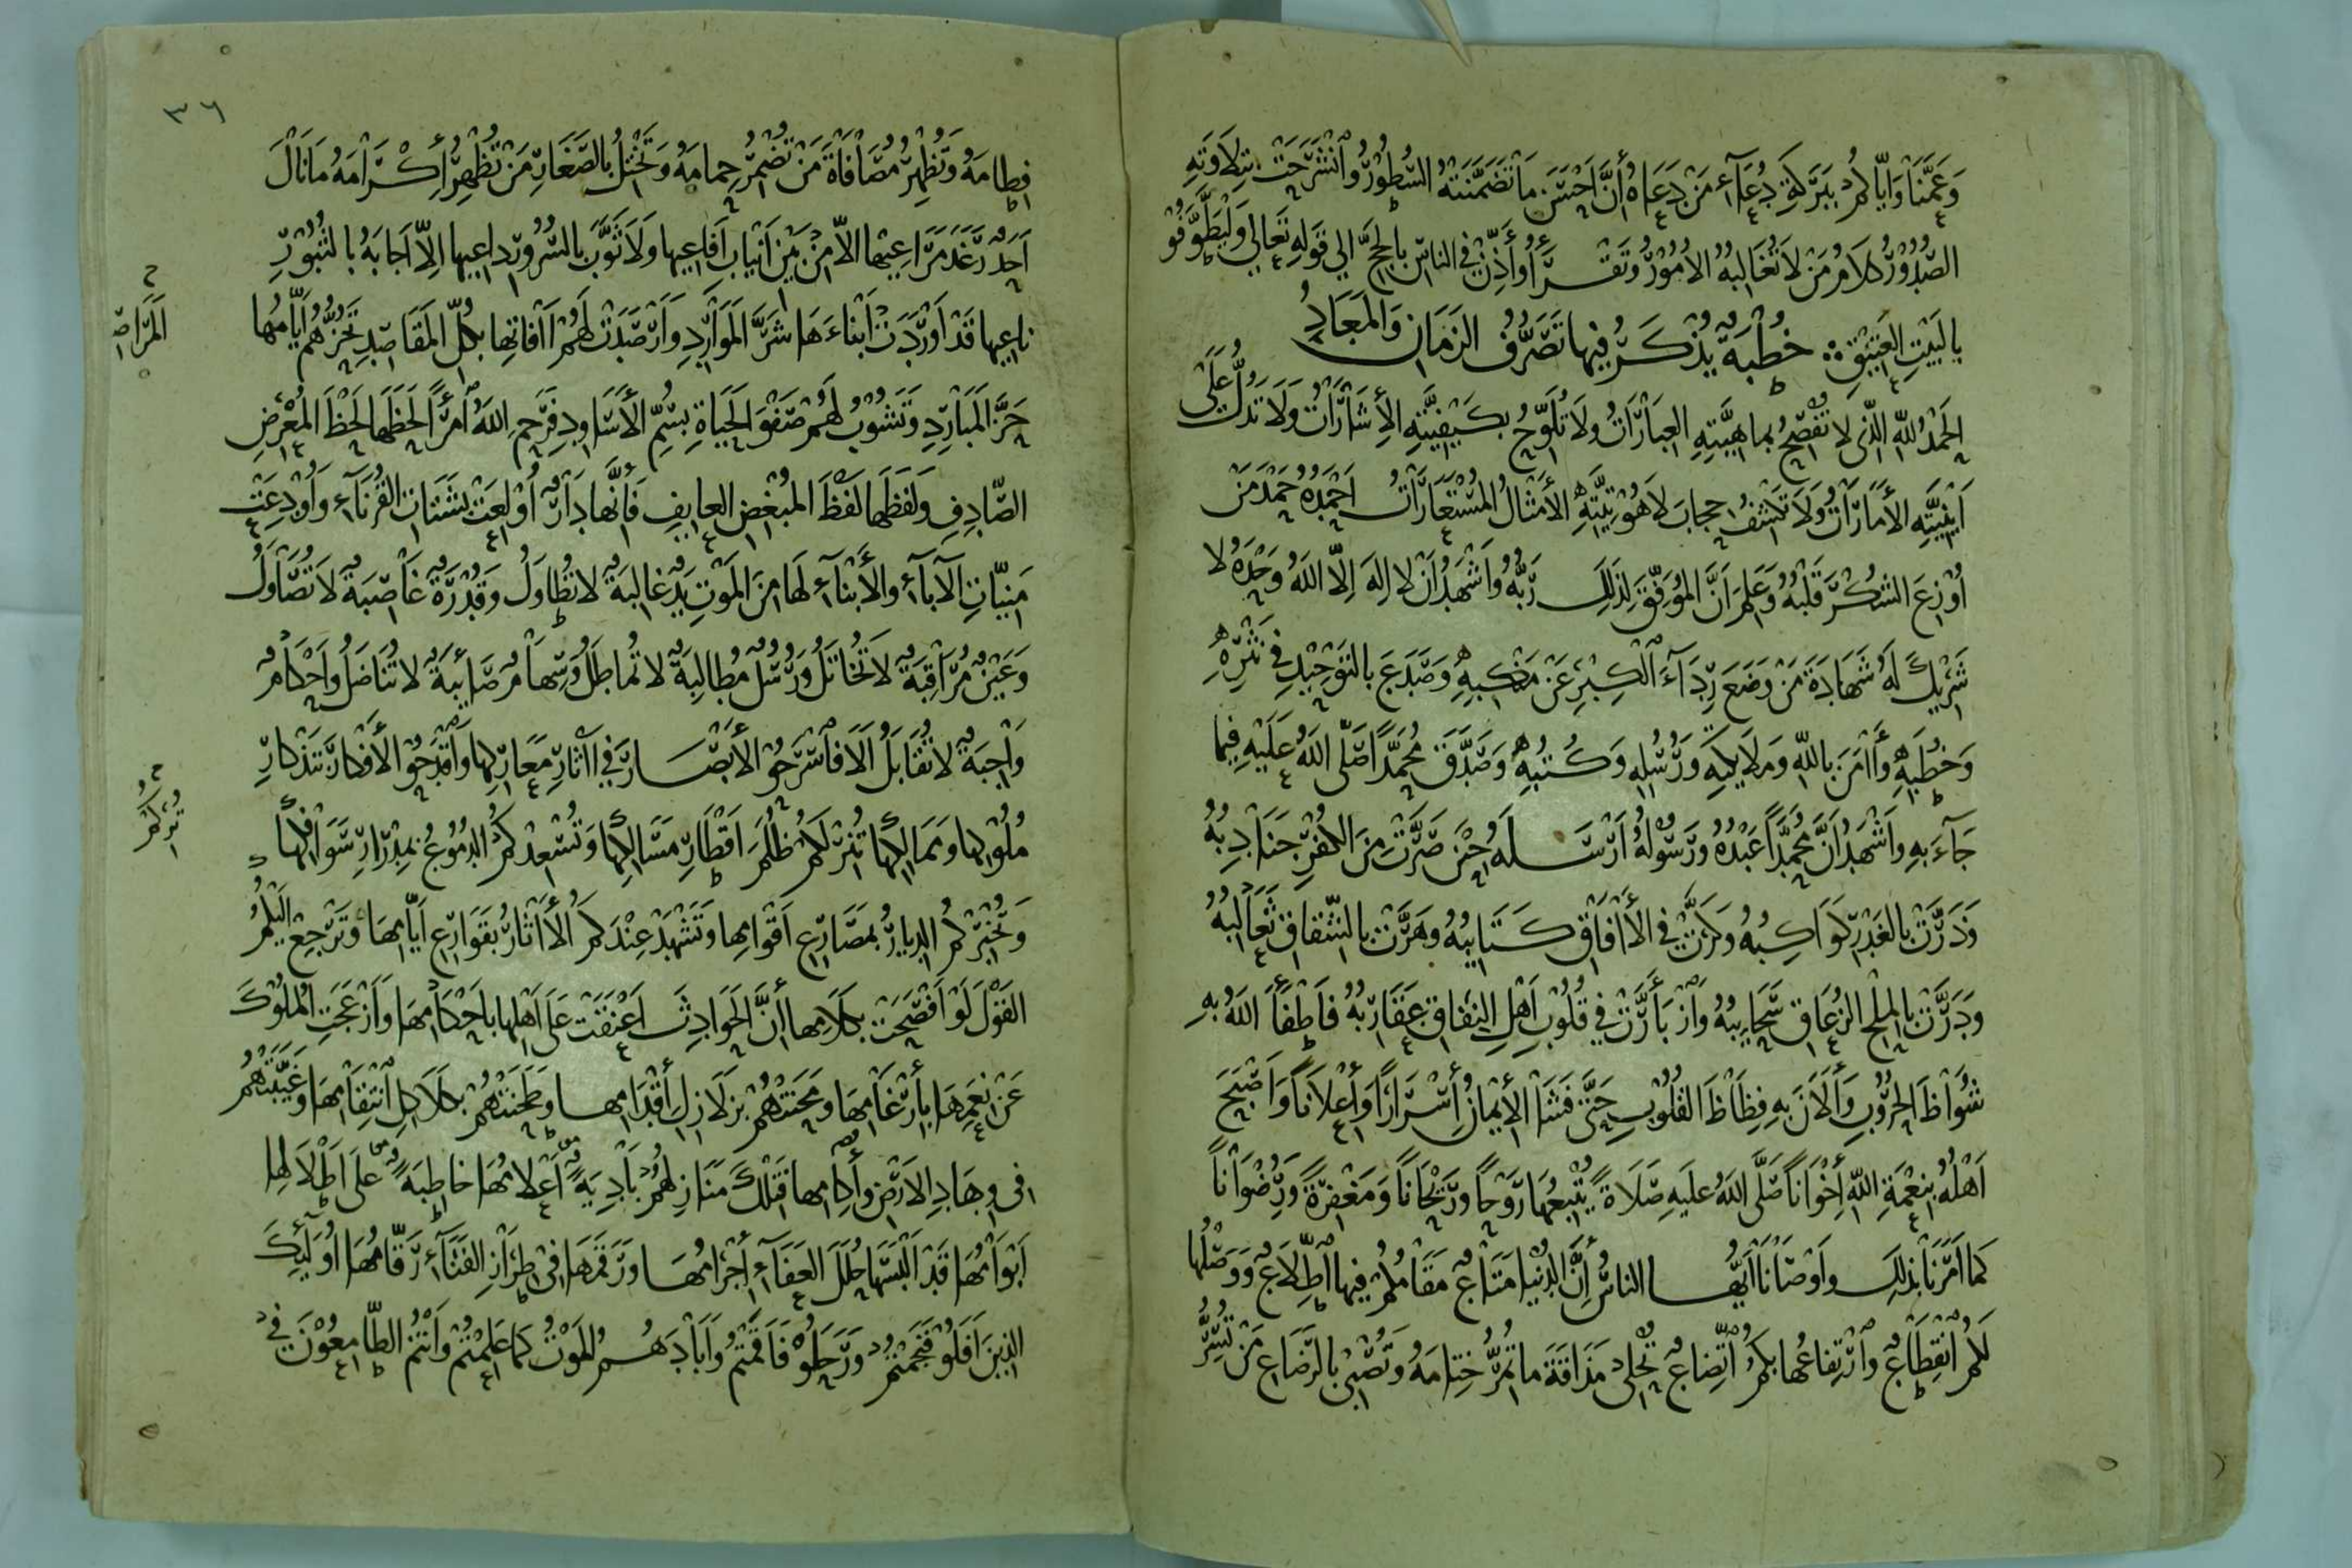 وَعَمَّنَا وَاِيَّاكُمْ بِبَرَكَةِ دُعَآءِ مَنْ دَعَاهُ أَنَّ اَحْسَنَ مَا تَضَمَّنَتْهُ السُّطُوْرُ وَانْشَرَحَتْ بِتِلَاوَتِهِ
الصُّدُوْرُ كَلَامُ مَنْ لَا تُغَالِبُهُ الْأُمُوْرُ وَتَقْرَأُ وَأَذِّنْ فِي النَّاسِ بِالْحَجِّ اِلَي قَوْلِهِ تَعَالَي وَلْيَطَّوَّفُوْ
بِالْبَيْتِ الْعَتِيْقِ خُطْبَةٌ يُذْكَرُ فِيهَا تَصَرُّفُ الزَّمَانِ وَالْمَعَادِ
اَلْحَمْدُ لِلّٰهِ الَّذِي لَا تُفْصِحُ بِمَاهِيَّتِهِ الْعِبَارَاتُ وَلَا تُلَوِّحُ بِكَيْفِيَّتِهِ الْأِشَارَاتُ وَلَا تَدُلُّ عَلَى
اَيْنِيَّتِهِ الْأَمَارَاتُ وَلَا تَكْشِفُ حِجَابَ لَاهُوْتِيَّتِهِ الْأَمْثَالُ الْمُسْتَعَارَاتُ اَحْمَدُهُ حَمْدَ مَنْ
أُوْزِعَ الشُّكْرَ قَلْبُهُ وَعَلِمَ اَنَّ الْمُوَفِّقَ لِذَلِكَ رَبُّهُ وَاَشْهَدُ اَنْ لَا اِلٰهَ اِلَّا اللّٰهُ وَحْدَهُ لَا
شَرِيْكَ لَهُ شَهَادَةَ مَنْ وَضَعَ رِدَآءَ الْكِبْرِ عَنْ مَنْكِبِهِ وَصَدَعَ بِالتَّوْحِيْدِ فِي نَثْرِهِ
وَخُطَبِهِ وَأَامَنَ بِاللّٰهِ وَمَلَايِكَتِهِ وَرُسُلِهِ وَكُتُبِهِ وَصَدَّقَ مُحَمَّدًا صَلَّى اللّٰهُ عَلَيْهِ فِيمَا
جَآءَ بِهِ وَاَشْهَدُ اَنَّ مُحَمَّدًا عَبْدُهُ وَرَسُوْلُهُ اَرْسَلَهُ حِيْنَ صَرَّتْ مِنَ الْكُفْرِ جَنَادِبُهُ
وَذَرَّتْ بِالْغَدْرِ كَوَاكِبُهُ وَكَرَّتْ فِي الْأَافَاقِ كَتَايِبُهُ وَهَرَّتْ بِالشِّقَاقِ ثَعَالِبُهُ
وَدَرَّتْ بِالْمِلْحِ الزُّعَاقِ سَحَايِبُهُ وَازْبَأَرَّتْ فِي قُلُوْبِ اَهْلِ النِّفَاقِ عَقَارِبُهُ فَاَطْفَأَ اللّٰهُ بِهِ
شُوَاظَ الْحُرُوْبِ وَأَلَانَ بِهِ فِظَاظَ الْقُلُوْبِ حَتَّى فَشَا الْأِيْمَانُ أِسْرَارًا وَأِعْلَانًا وَاَصْبَحَ
اَهْلُهُ بِنِعْمَةِ اللّٰهِ أِخْوَانًا صَلَّى اللّٰهُ عَلَيْهِ صَلَاةً يُتْبِعُهَا رَوْحًا وَرَيْحَانًا وَمَغْفِرَةً وَرِضْوَانًا
كَمَا اَمَرَنَا بِذَلِكَ وَاَوْصَانَا اَيُّهَا النَّاسُ إِنَّ الدُّنْيَا مَتَاعٌ مَقَامُكُمْ فِيهَا اطِّلَاعٌ وَوَصْلُهَا
لَكُمُ انْقِطَاعٌ وَارْتِفَاعُهَا بِكُمُ اتِّضَاعٌ تُحْلِي مَذَاقَةَ مَا تُمِرُّ خِتَامَهُ وَتُصْبِي بِالرَّضَاعِ مَنْ تُسِرُّ
٣٦
فِطَامَهُ وَتُظْهِرُ مُصَافَاةَ مَنْ تُضْمِرُ حِمَامَهُ وَتَخْتِلُ بِالصَّغَارِ مَنْ تُظْهِرُ أِكْرَامَهُ مَا نَالَ
اَحَدٌ رَغَدَ مَرَاعِيْهَا اِلَّا مِنْ بَيْنِ اَنْيَابِ اَفَاعِيهَا وَلَا ثَوَّبَ بِالسُّرُوْرِ دَاعِيهَا اِلَّا اَجَابَهُ بِالثُّبُوْرِ
نَاعِيهَا قَدْ اَوْرَدَتْ اَبْنَاءَهَا شَرَّ الْمَوَارِدِ وَاَرْصَدَتْ لَهُمْ أَافَاتِهَا بِكُلِّ الْمَقَاصِدِ تَحُزُّهُمْ اَيَّامُهَا
حَزَّ الْمَبَارِدِ وَتَشُوْبُ لَهُمْ صَفْوَ الْحَيَاةِ بِسُمِّ الْأَسَاوِدِ فَرَحِمَ اللّٰهُ امْرَأً لَحَظَهَا لَحْظَ الْمُعْرِضِ
الصَّادِفِ وَلَفَظَهَا لَفْظَ الْمُبْغِضِ الْعَايِفِ فَأِنَّهَا دَارٌ اُوْلِعَتْ بِشَتَاتِ الْقُرَنَآءِ وَاُوْدِعَتْ
مَنِيَّاتِ الْآبَآءِ وَالْأَبْنَآءِ لَهَا مِنَ الْمَوْتِ يَدٌ غَالِبَةٌ لَا تُطَاوَلُ وَقُدْرَةٌ غَاصِبَةٌ لَا تُصَاوَلُ
وَعَيْنٌ مُرَاقِبَةٌ لَا تُخَاتَلُ وَرُسُلٌ مُطَالِبَةٌ لَا تُمَاطَلُ وَسِهَامٌ صَايِبَةٌ لَا تُنَاضَلُ وَاَحْكَامٌ
وَاجِبَةٌ لَا تُقَابَلُ اَلَا فَاسْرَحُوْا الْأَبْصَارَ فِي أَاثَارِ مَعَارِكِهَا وَاقْدَحُوْا الْأَفْكَارَ بِتَذْكَارِ
مُلُوْكِهَا وَمَمَالِكِهَا تُنِرْ لَكُمْ ظُلَمَ اَقْطَارِ مَسَالِكِهَا وَتُسْعِدْكُمُ الدُّمُوْعُ بِمِدْرَارِ سَوَافِكِهَا
وَتُخْبِرْكُمُ الدِّيَارُ بِمَصَارِعِ اَقْوَامِهَا وَتَشْهَدْ عِنْدَكُمُ الْأَاثَارُ بِقَوَارِعِ اَيَّامِهَا وَتَرْجِعْ اِلَيْكُمُ
الْقَوْلَ لَوْ اَفْصَحَتْ بِكَلَامِهَا أَنَّ الْحَوَادِثَ اَعْنَقَتْ عَلَى اَهْلِهَا بِاَحْكَامِهَا وَاَزْعَجَتِ الْمُلُوْكَ
عَنْ نِعَمِهَا بِأِرْغَامِهَا وَمَحَتْهُمْ بِزَلَازِلِ أَقْدَامِهَا وَطَحَنَتْهُمْ بِكَلَاكِلِ انْتِقَامِهَا وَغَيَّبَتْهُمْ
فِي وِهَادِ الْأَرْضِ وَأَكَامِهَا فَتِلْكَ مَنَازِلُهُمْ بَادِيَةً أَعْلَامُهَا خَاطِبَةً عَلَى اَطْلَالِهَا
اَبْوَامُهَا قَدْ اَلْبَسَهَا حُلَلَ الْعَفَآءِ أَجْرَامُهَا وَرَقَمَهَا فِي طِرَازِ الْفَنَآءِ رَقَّامُهَا اُوْلَيِكَ
الَّذِيْنَ اَفَلُوْ فَنَجَمْتُمْ وَرَحَلُوْ فَاَقَمْتُمْ وَأَبَادَهُمُ الْمَوْتُ كَمَا عَلِمْتُمْ وَاَنْتُمُ الطَّامِعُوْنَ فِي